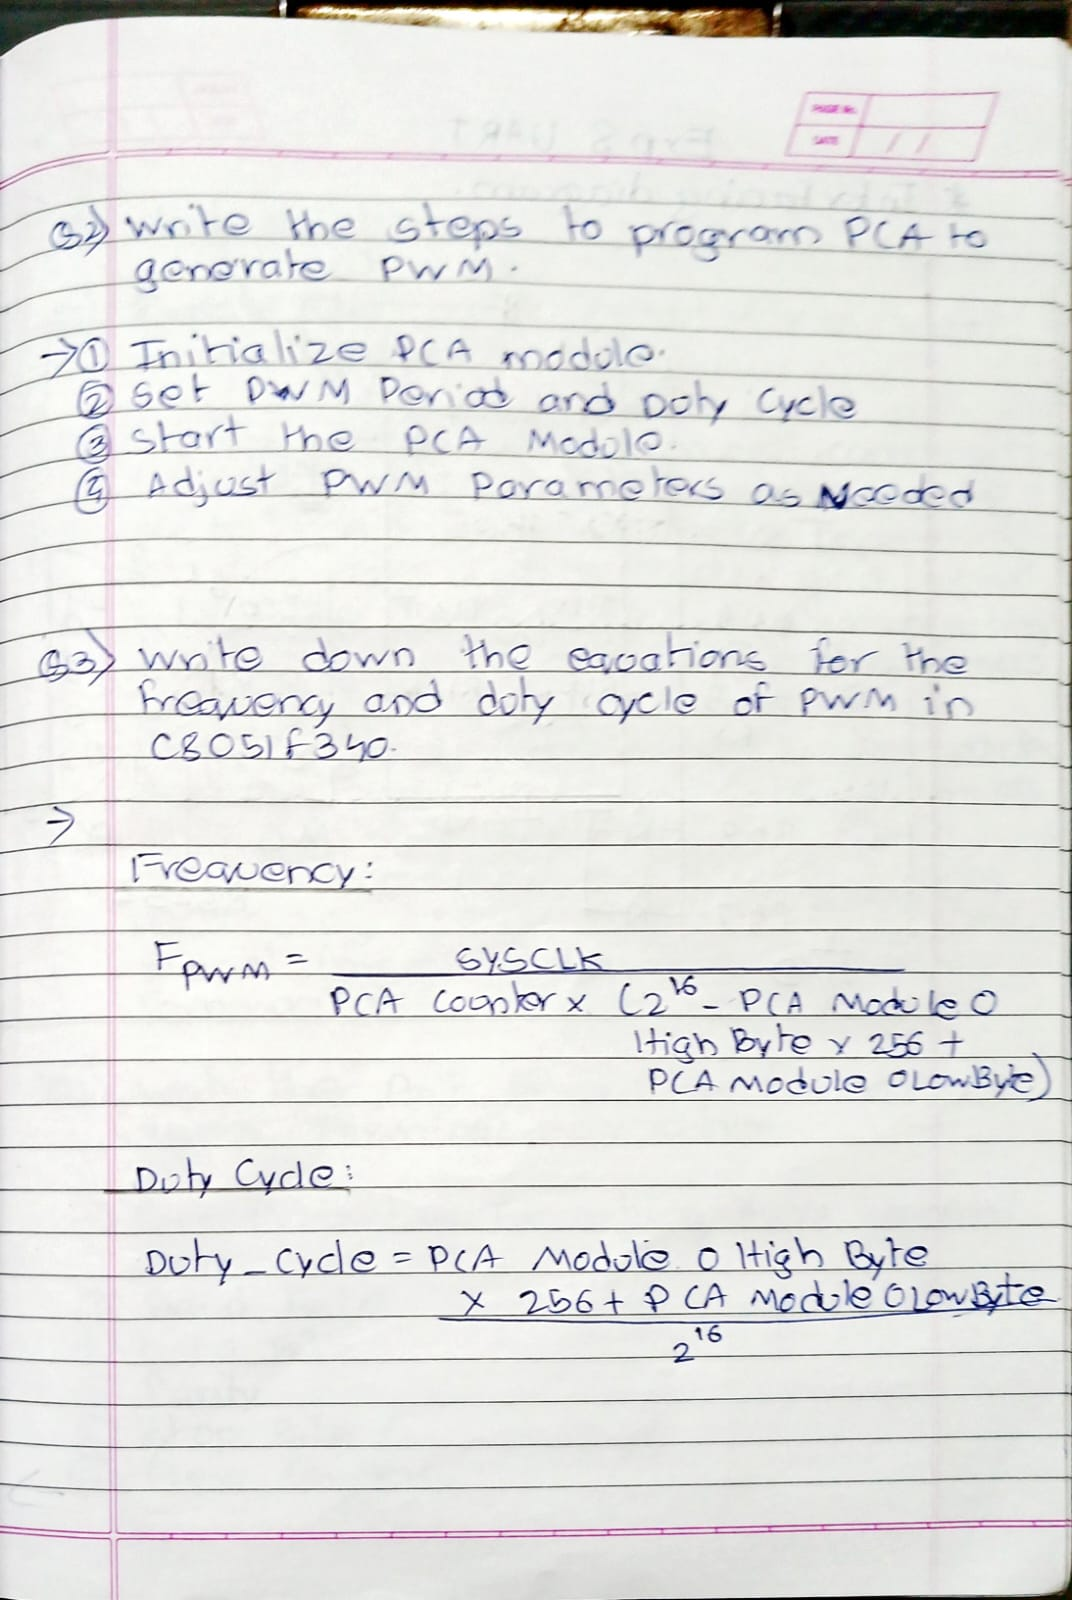 PAGE No.
DATE / /
Q2) Write the steps to program PCA to
generate PWM.
→ ① Initialize PCA module.
② Set PWM Period and Duty Cycle
③ Start the PCA Module.
④ Adjust PWM Parameters as Needed
Q3) Write down the equations for the
frequency and duty cycle of PWM in
C8051F340.
→
Frequency:
F PWM = SYSCLK
PCA Counter x (2^16 - PCA Module 0
High Byte x 256 +
PCA Module 0 Low Byte)
Duty Cycle:
Duty_Cycle = PCA Module 0 High Byte
x 256 + PCA Module 0 Low Byte
2^16